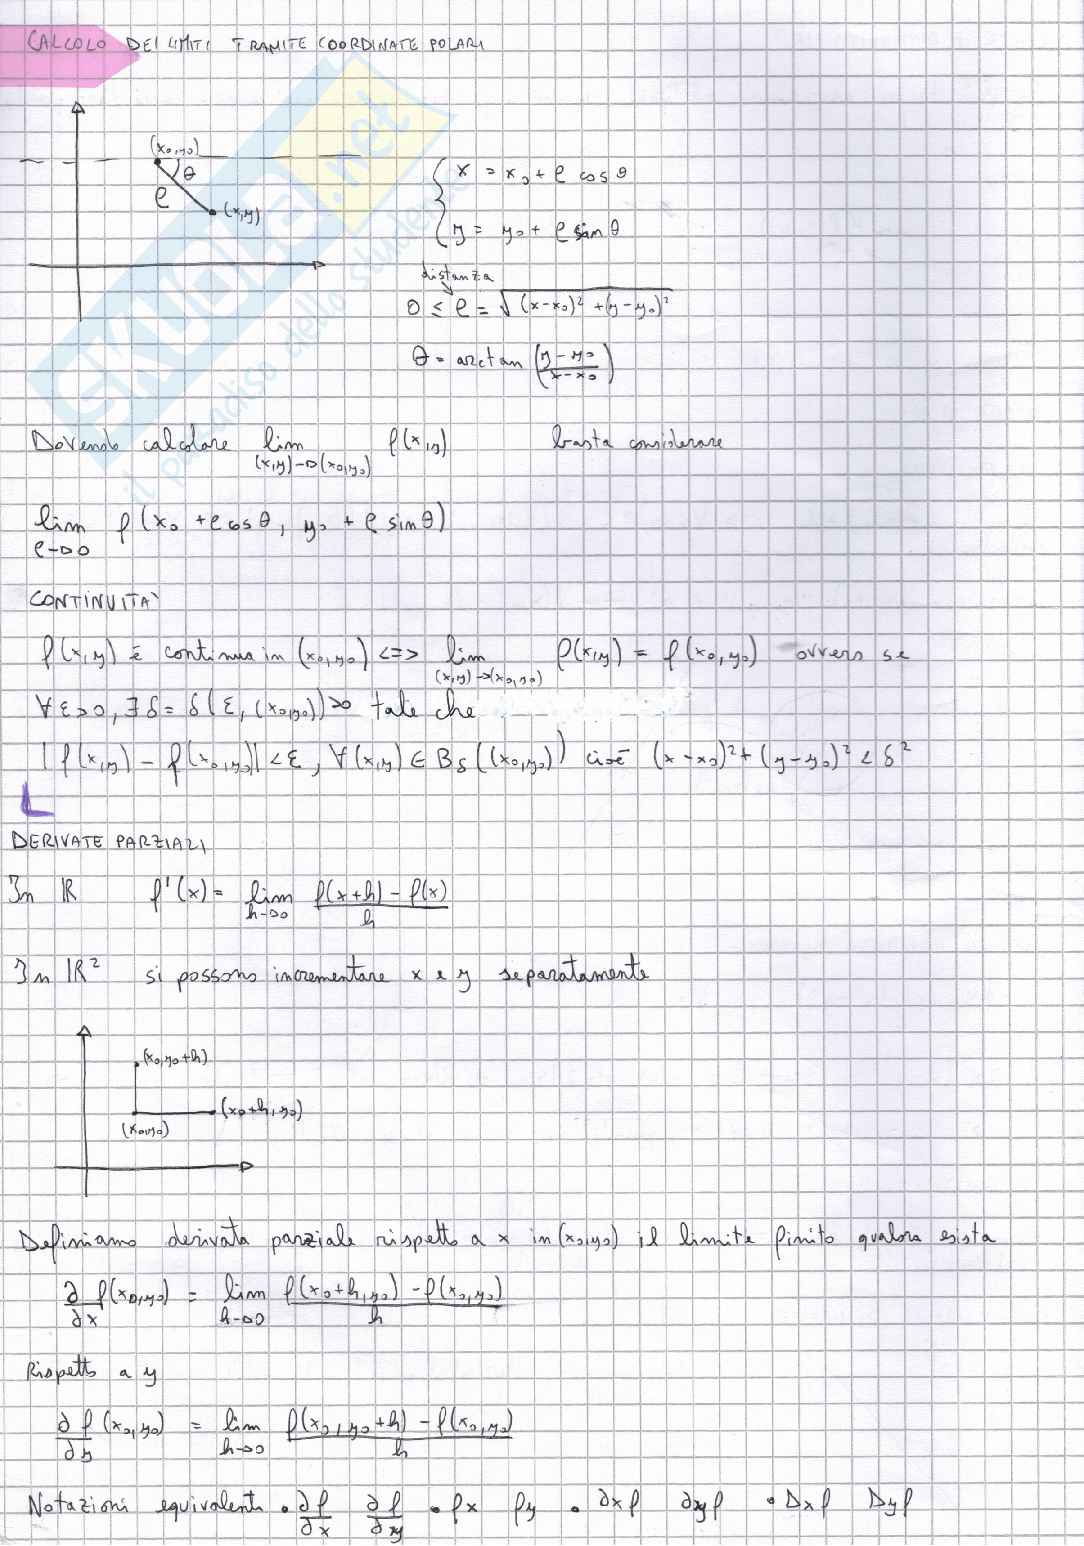 CALCOLO DEI LIMITI TRAMITE COORDINATE POLARI
(x₀,y₀)
θ
ρ
(x,y)
{ x = x₀ + ρ cos θ
y = y₀ + ρ sin θ
distanza
0 ≤ ρ = √((x-x₀)² + (y-y₀)²)
θ = arctan ((y-y₀)/(x-x₀))
Dovendo calcolare lim (x,y)→(x₀,y₀) f(x,y) basta considerare
lim ρ→0 f(x₀ + ρ cos θ, y₀ + ρ sin θ)
CONTINUITA'
f(x,y) è continua in (x₀,y₀) <=> lim (x,y)→(x₀,y₀) f(x,y) = f(x₀,y₀) ovvero se
∀ε>0, ∃δ = δ(ε, (x₀,y₀))>0 tale che
|f(x,y) - f(x₀,y₀)| < ε, ∀(x,y) ∈ Bδ((x₀,y₀)) cioè (x-x₀)² + (y-y₀)² < δ²
DERIVATE PARZIALI
In ℝ f'(x) = lim h→0 (f(x+h) - f(x))/h
In ℝ² si possono incrementare x e y separatamente
(x₀,y₀+h)
(x₀+h,y₀)
(x₀,y₀)
Definiamo derivata parziale rispetto a x in (x₀,y₀) il limite finito qualora esista
∂/∂x f(x₀,y₀) = lim h→0 (f(x₀+h,y₀) - f(x₀,y₀))/h
Rispetto a y
∂f/∂y (x₀,y₀) = lim h→0 (f(x₀,y₀+h) - f(x₀,y₀))/h
Notazioni equivalenti • ∂f/∂x ∂f/∂y • fx fy • ∂xf ∂yf • Dxf Dyf
SKUOLA.net
il paradiso dello studente